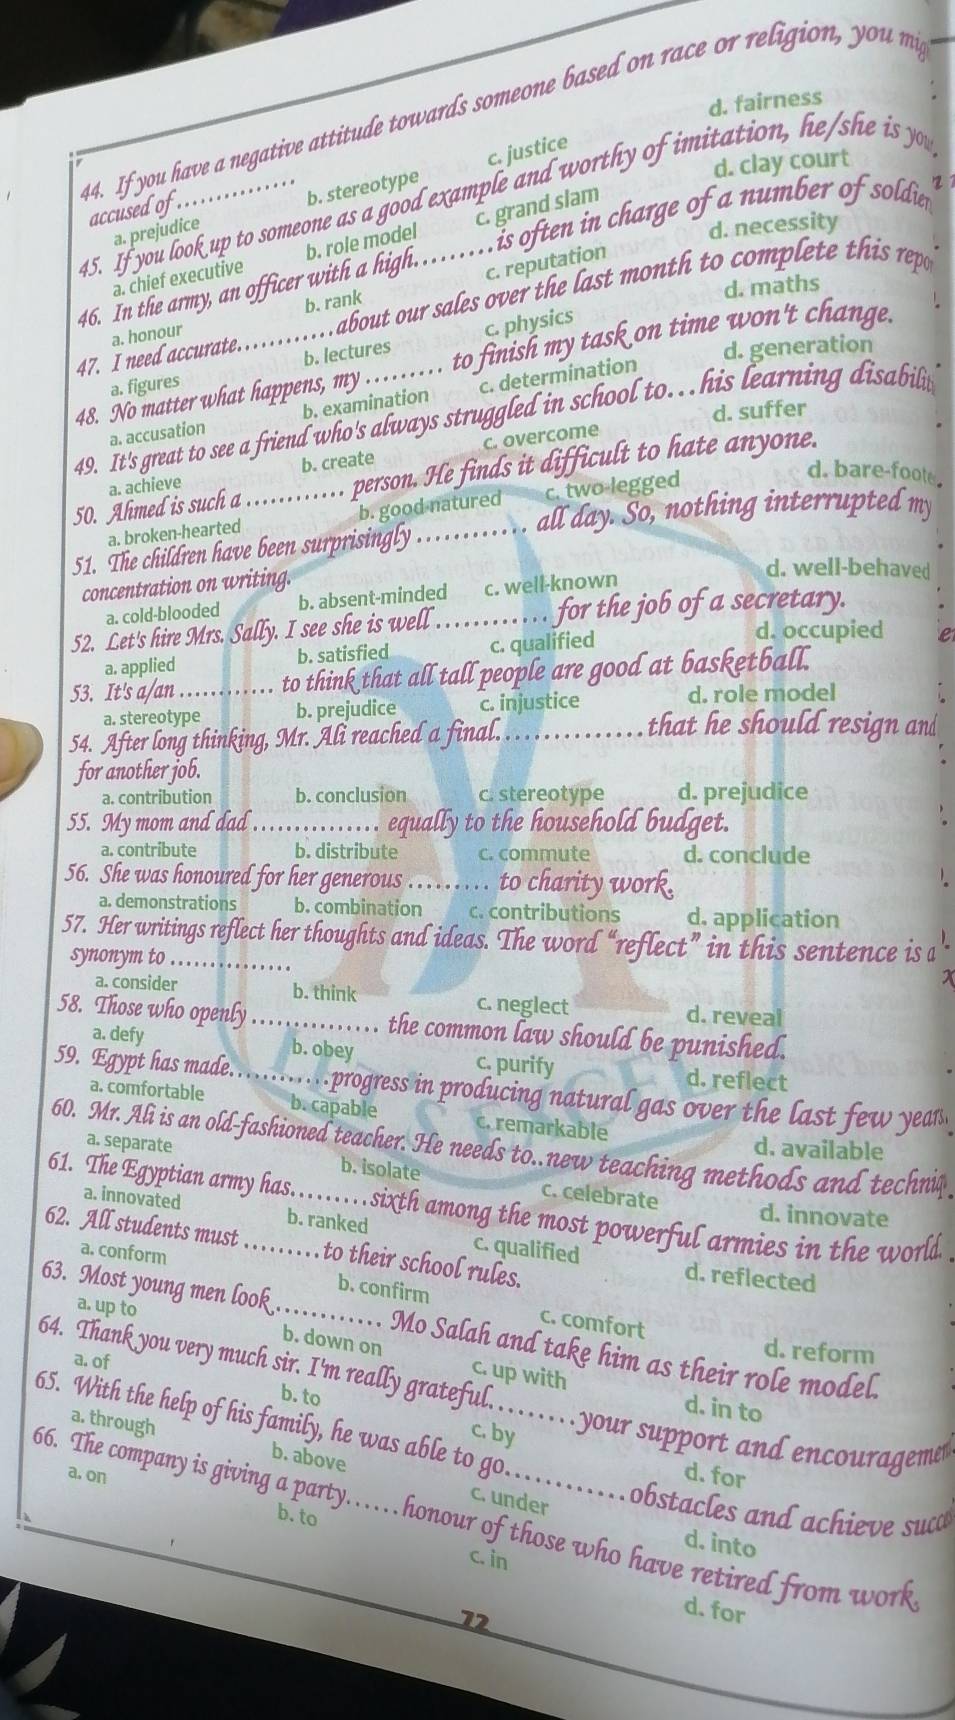 44. If you have a negative attitude towards someone based on race or religion, you
accused of ..............
a. prejudice b. stereotype c. justice d. fairness
45. If you look up to someone as a good example and worthy of imitation, he/she is
a. chief executive b. role model c. grand slam d. clay court
46. In the army, an officer with a high.........is often in charge of a number of
a. honour b. rank c. reputation d. necessity
47. I need accurate...........about our sales over the last month to complete this
a. figures b. lectures c. physics d. maths
48. No matter what happens, my ......... to finish my task on time won't change.
a. accusation b. examination c. determination d. generation
49. It's great to see a friend who's always struggled in school to...his learning
a. achieve b. create c. overcome d. suffer
50. Ahmed is such a ............ person. He finds it difficult to hate anyone.
a. broken-hearted b. good-natured c. two-legged
51. The children have been surprisingly ............. all day. So, nothing interrupted my
concentration on writing.
a. cold-blooded b. absent-minded c. well-known d. well-behaved
52. Let's hire Mrs. Sally. I see she is well ............. for the job of a secretary.
a. applied b. satisfied c. qualified d. occupied
53. It's a/an ............ to think that all tall people are good at basketball.
a. stereotype b. prejudice c. injustice d. role model
54. After long thinking, Mr. Ali reached a final................that he should resign and
for another job.
a. contribution b. conclusion c. stereotype d. prejudice
55. My mom and dad ............... equally to the household budget.
a. contribute b. distribute c. commute d. conclude
56. She was honoured for her generous ......... to charity work.
a. demonstrations b. combination c. contributions d. application
57. Her writings reflect her thoughts and ideas. The word “reflect” in this sentence is a
synonym to ...............
a. consider b. think c. neglect d. reveal
58. Those who openly ............... the common law should be punished.
a. defy b. obey c. purify d. reflect
59. Egypt has made............progress in producing natural gas over the last few years.
a. comfortable b. capable c. remarkable d. available
60. Mr. Ali is an old-fashioned teacher. He needs to..new teaching methods and
a. separate b. isolate c. celebrate d. innovate
61. The Egyptian army has..........sixth among the most powerful armies in the world.
a. innovated b. ranked c. qualified d. reflected
62. All students must .........to their school rules.
a. conform b. confirm c. comfort d. reform
63. Most young men look ............. Mo Salah and take him as their role model.
a. up to b. down on c. up with d. in to
64. Thank you very much sir. I'm really grateful.........your support and
a. of b. to c. by d. for
65. With the help of his family, he was able to go..............obstacles and achieve
a. through b. above c. under d. into
66. The company is giving a party......honour of those who have retired from work.
a. on b. to c. in d. for
72